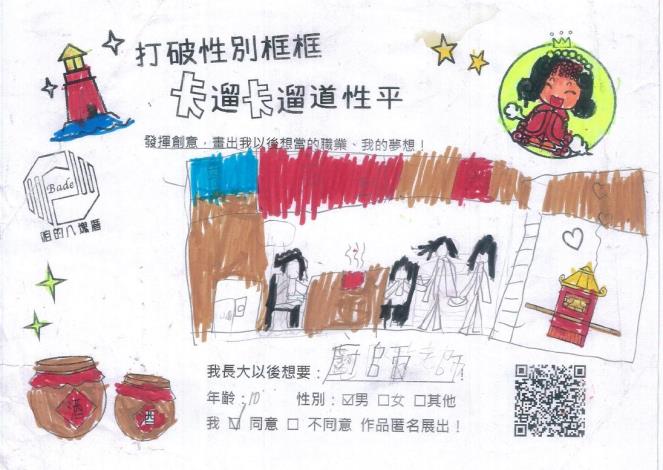 打破性別框框
卡遛卡遛道性平
發揮創意，畫出我以後想當的職業、我的夢想！
Bade
咱的八塊厝
我長大以後想要：廚師 老師！
年齡：10 性別：☑男 □女 □其他
我 ☑ 同意 □ 不同意 作品匿名展出！
酒
酒